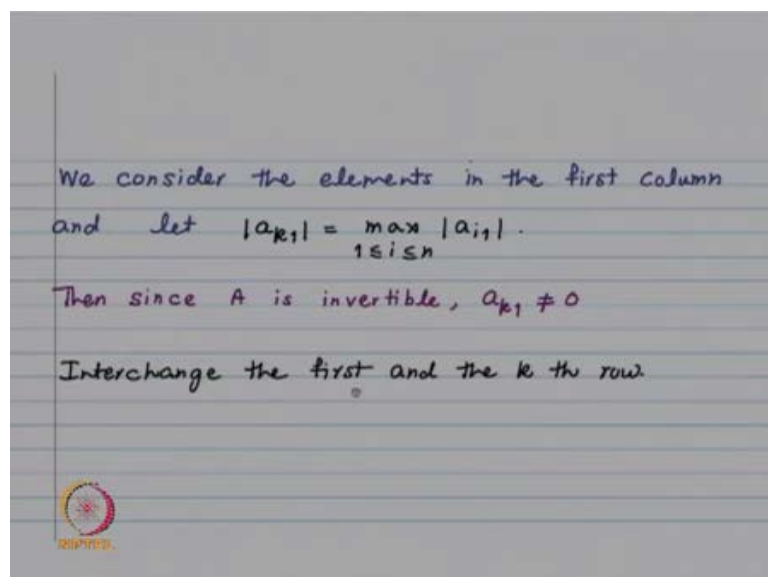 We consider the elements in the first column
and let |a_{k1}| = max |a_{i1}| .
1 ≤ i ≤ n
Then since A is invertible, a_{k1} ≠ 0
Interchange the first and the k th row.
NPTEL